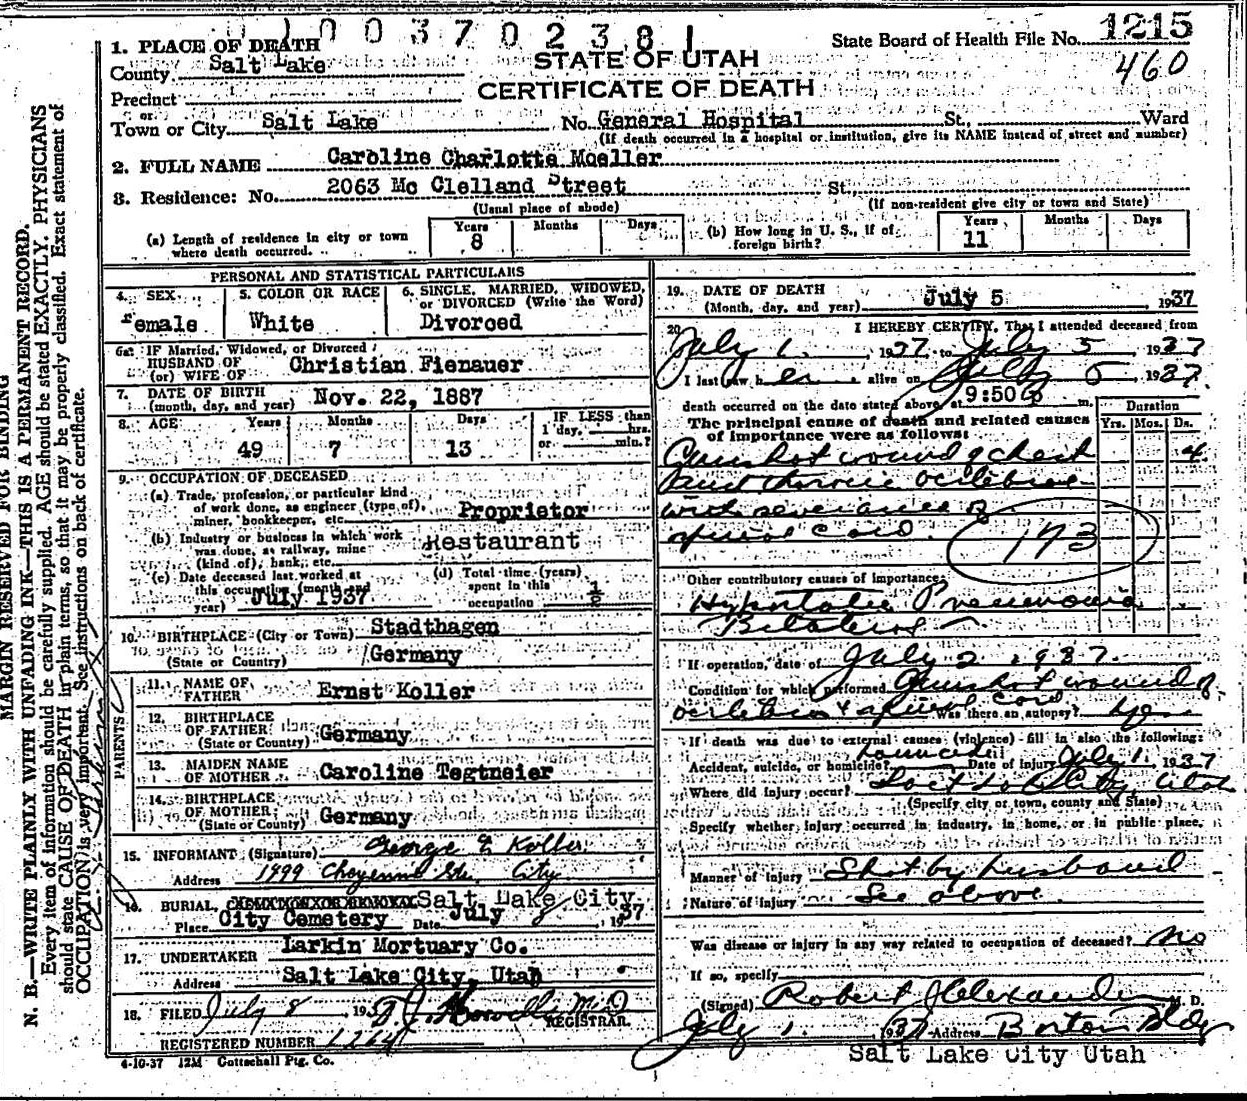 1003702381
State Board of Health File No. 1215
460
STATE OF UTAH
CERTIFICATE OF DEATH
1. PLACE OF DEATH
County Salt Lake
Precinct
or
Town or City Salt Lake No. General Hospital St., Ward
(If death occurred in a hospital or institution, give its NAME instead of street and number)
2. FULL NAME Caroline Charlotte Moeller
3. Residence: No. 2063 Mc Clelland Street St.
(Usual place of abode) (If non-resident give city or town and State)
(a) Length of residence in city or town where death occurred. Years 8 Months Days
(b) How long in U. S., if of foreign birth? Years 11 Months Days
PERSONAL AND STATISTICAL PARTICULARS
4. SEX female
5. COLOR OR RACE White
6. SINGLE, MARRIED, WIDOWED, or DIVORCED (Write the Word) Divorced
6a. IF Married, Widowed, or Divorced
HUSBAND OF
(or) WIFE OF Christian Fienauer
7. DATE OF BIRTH
(month, day, and year) Nov. 22, 1887
8. AGE Years 49 Months 7 Days 13 IF LESS than 1 day, hrs. or min.?
9. OCCUPATION OF DECEASED
(a) Trade, profession, or particular kind of work done, as engineer (type of), miner, bookkeeper, etc. Proprietor
(b) Industry or business in which work was done, as railway, mine (kind of), bank, etc. Restaurant
(c) Date deceased last worked at this occupation (month and year) July 1937
(d) Total time (years) spent in this occupation ½
10. BIRTHPLACE (City or Town) Stadthagen
(State or Country) Germany
PARENTS
11. NAME OF FATHER Ernst Koller
12. BIRTHPLACE OF FATHER
(State or Country) Germany
13. MAIDEN NAME OF MOTHER Caroline Tegtmeier
14. BIRTHPLACE OF MOTHER
(State or Country) Germany
15. INFORMANT (Signature) George E Koller
Address 1499 Cheyenne Str. City
16. BURIAL, Salt Lake City
Place City Cemetery Date July 8, 1937
17. UNDERTAKER Larkin Mortuary Co.
Address Salt Lake City, Utah
18. FILED July 8 193 M.D.
REGISTRAR.
REGISTERED NUMBER 1264
4-10-37 12M Gottschall Ptg. Co.
19. DATE OF DEATH
(Month, day, and year) July 5 1937
20. I HEREBY CERTIFY, That I attended deceased from
July 1, 1937 to July 5, 1937
I last saw her alive on July 5 1937.
death occurred on the date stated above, at 9:50 p m.
The principal cause of death and related causes of importance were as follows:
Duration
Yrs. Mos. Ds.
Gunshot wound of chest 4
with severance of
spinal cord.
173
Other contributory causes of importance:
Hypostatic Pneumonia
Bilateral
If operation, date of July 2, 1937.
Condition for which performed Gunshot wound of
spinal cord Was there an autopsy? Yes
If death was due to external causes (violence) fill in also the following:
Accident, suicide, or homicide? homicide Date of injury July 1, 1937
Where did injury occur? Salt Lake City, Utah
(Specify city or town, county and State)
Specify whether injury occurred in industry, in home, or in public place,
Manner of injury Shot by husband
Nature of injury See above
Was disease or injury in any way related to occupation of deceased? No
If so, specify
(Signed) Robert Alexander M. D.
July 1937 Address Boston Bldg
Salt Lake City Utah
MARGIN RESERVED FOR BINDING
N. B.—WRITE PLAINLY WITH UNFADING INK—THIS IS A PERMANENT RECORD.
Every item of information should be carefully supplied. AGE should be stated EXACTLY. PHYSICIANS
should state CAUSE OF DEATH in plain terms, so that it may be properly classified. Exact statement of
OCCUPATION is very important. See instructions on back of certificate.